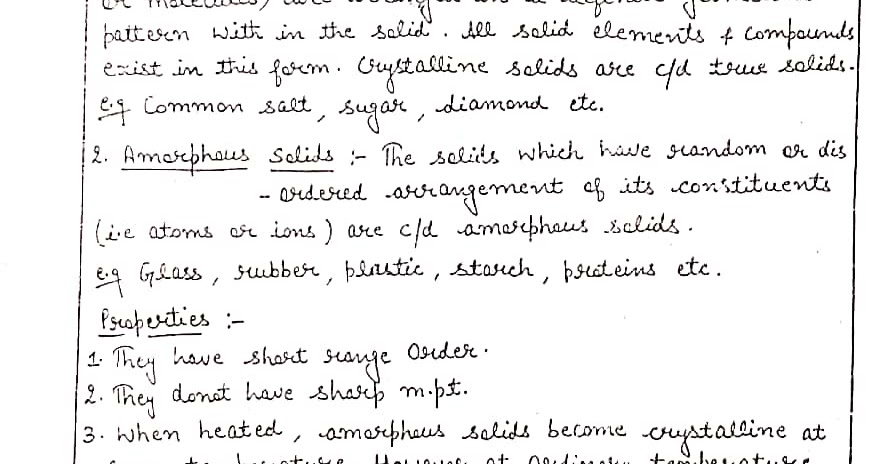 pattern with in the solid. All solid elements & compounds
exist in this form. Crystalline solids are c/d true solids.
e.g Common salt, sugar, diamond etc.
2. Amorphous Solids :- The solids which have random or dis
- ordered arrangement of its constituents
(i.e atoms or ions) are c/d amorphous solids.
e.g Glass, rubber, plastic, starch, proteins etc.
Properties :-
1. They have short range Order.
2. They donot have sharp m.pt.
3. When heated, amorphous solids become crystalline at